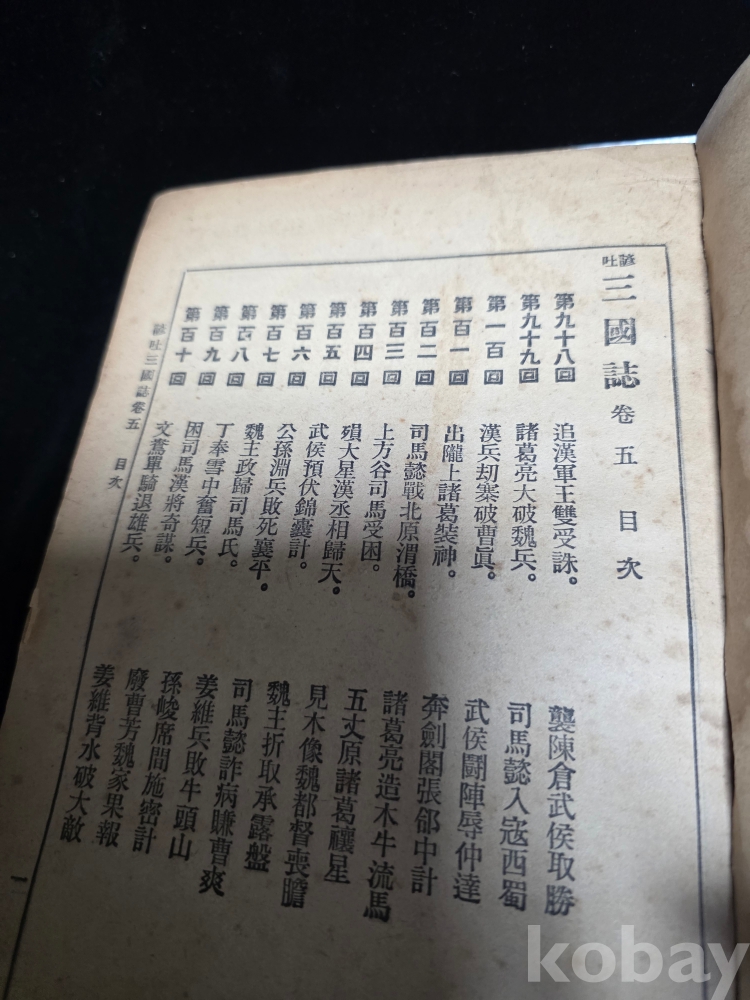 諺吐 三國誌 卷五 目次
第九十八回 追漢軍王雙受誅。 襲陳倉武侯取勝
第九十九回 諸葛亮大破魏兵。 司馬懿入寇西蜀
第一百回 漢兵刧寨破曹眞。 武侯鬪陣辱仲達
第百一回 出隴上諸葛裝神。 奔劍閣張郃中計
第百二回 司馬懿戰北原渭橋。 諸葛亮造木牛流馬
第百三回 上方谷司馬受困。 五丈原諸葛禳星
第百四回 殞大星漢丞相歸天。 見木像魏都督喪膽
第百五回 武侯預伏錦囊計。 魏主折取承露盤
第百六回 公孫淵兵敗死襄平。 司馬懿詐病賺曹爽
第百七回 魏主政歸司馬氏。 姜維兵敗牛頭山
第百八回 丁奉雪中奮短兵。 孫峻席間施密計
第百九回 困司馬漢將奇謀。 廢曹芳魏家果報
第百十回 文鴦單騎退雄兵。 姜維背水破大敵
諺吐三國誌卷五 目次 一
kobay